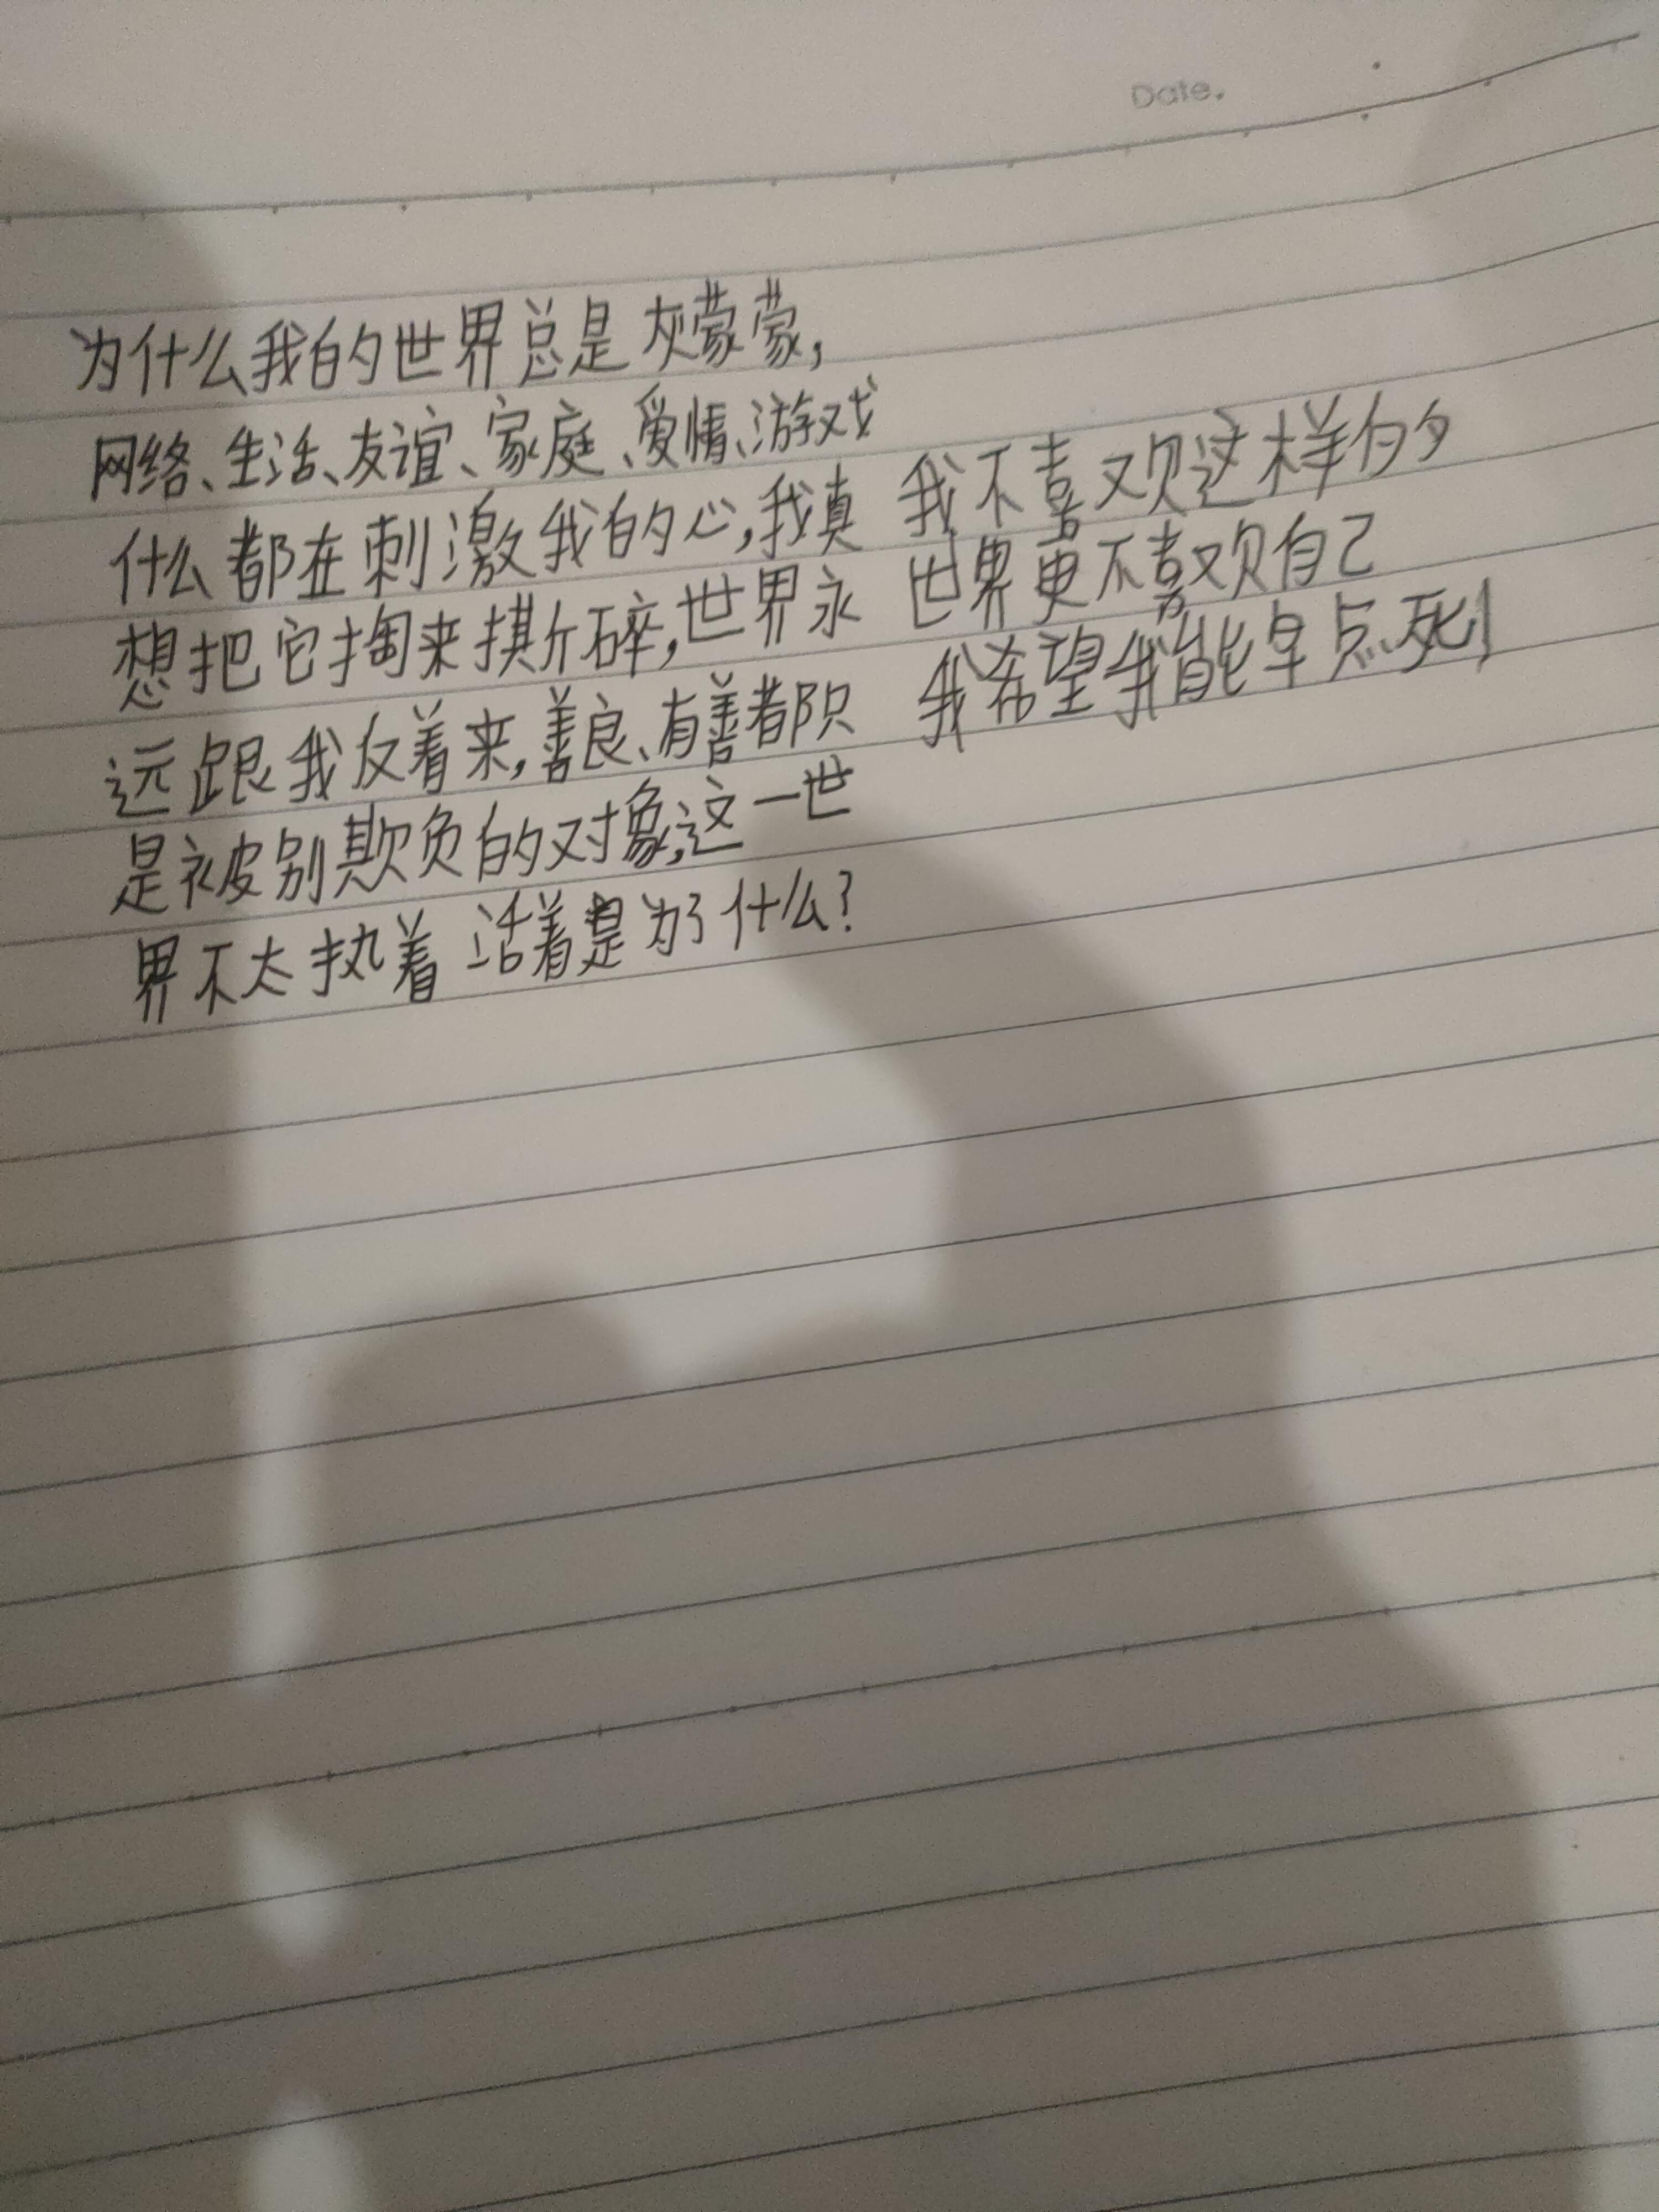 Date.
为什么我的世界总是灰蒙蒙,
网络、生活、友谊、家庭、爱情、游戏
什么都在刺激我的心,我真
想把它掏来撕碎,世界永
远跟我反着来,善良、有善都只
是被别欺负的对象,这一世
界不太执着 活着是为了什么?
我不喜欢这样的
世界更不喜欢自己
我希望我能早点死!